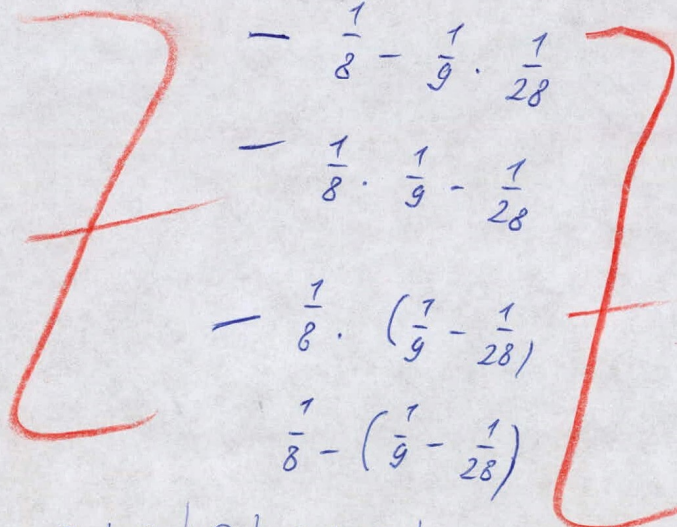 – 1/8 - 1/9 · 1/28
– 1/8 · 1/9 - 1/28
– 1/8 · (1/9 - 1/28)
1/8 - (1/9 - 1/28)